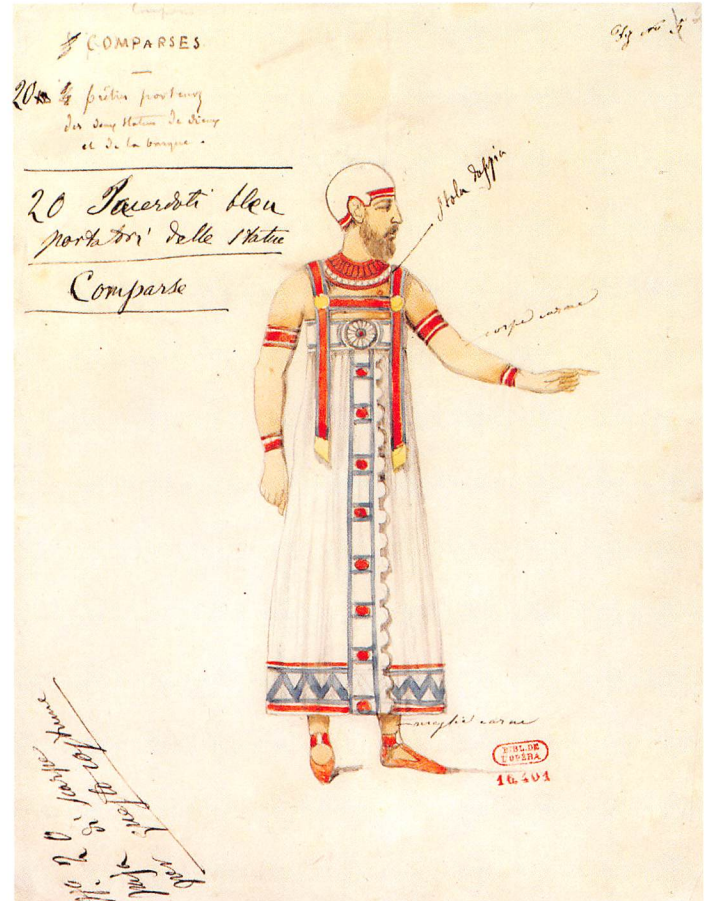 COMPARSES
20 prêtres porteurs
des deux statues de dieux
et de la barque.
20 Sacerdoti bleu
portatori delle statue
Comparse
stola doppia
corpo carne
maglia carne
BIBL. DE
L'OPÉRA
16.401
20
di scarpe
per questo costume